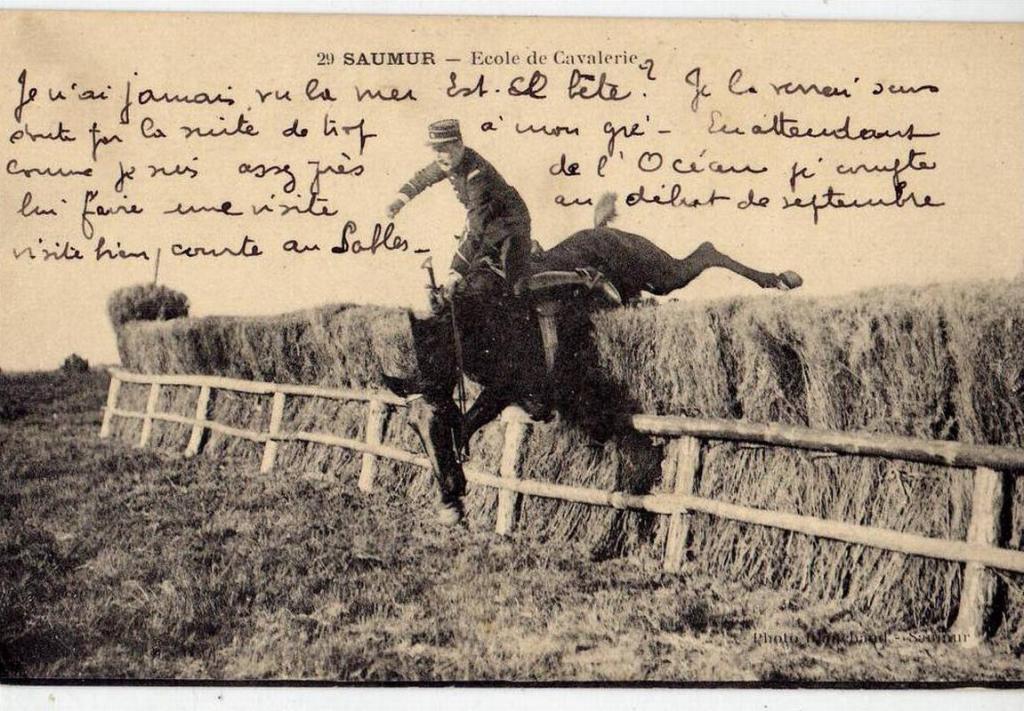 29 SAUMUR — Ecole de Cavalerie
Je n'ai jamais vu la mer Est-il bête? Je la verrai sans
doute par la suite de trop à mon gré - En attendant
comme je suis assez près de l'Océan je compte
lui faire une visite au début de septembre
visite bien courte au Sables_
Photo Blanchaud - Saumur